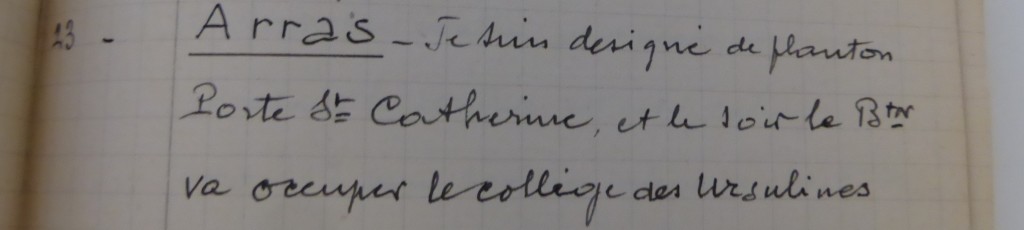 23 - Arras - Je suis designé de planton
Porte St Catherine, et le soir le Bton
va occuper le collège des Ursulines